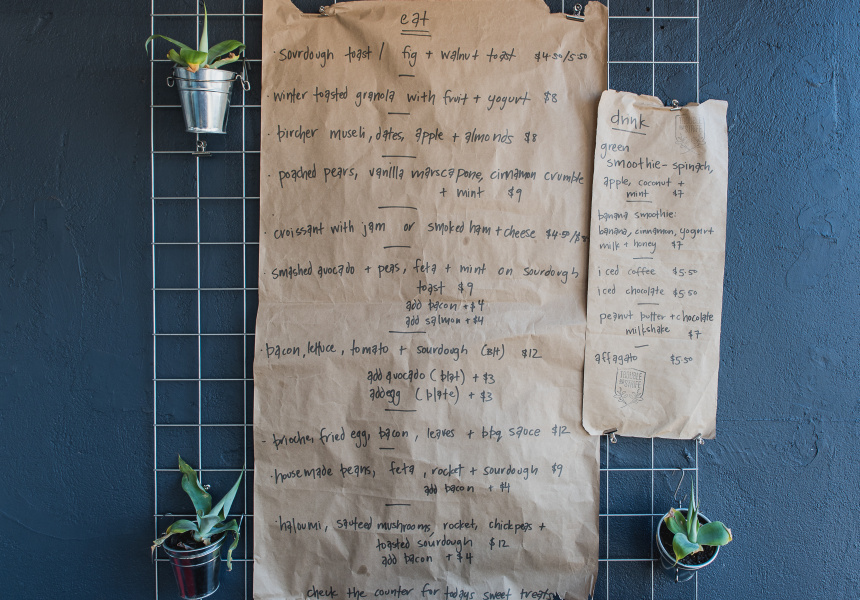 eat
· sourdough toast / fig + walnut toast $4.50/5.50
· winter toasted granola with fruit + yogurt $8
· bircher museli, dates, apple + almonds $8
· poached pears, vanilla marscapone, cinnamon crumble
+ mint $9
· croissant with jam or smoked ham + cheese $4.50/
· smashed avocado + peas, feta + mint on sourdough
toast $9
add bacon + $4
add salmon + $4
· bacon, lettuce, tomato + sourdough (blt) $12
add avocado (blat) + $3
add egg (blate) + $3
· brioche, fried egg, bacon, leaves + bbq sauce $12
· housemade beans, feta, rocket + sourdough $9
add bacon + $4
· haloumi, sauteed mushrooms, rocket, chickpeas +
toasted sourdough $12
add bacon + $4
check the counter for todays sweet treats
drink
green
smoothie - spinach,
apple, coconut +
mint $7
banana smoothie:
banana, cinnamon, yogurt
milk + honey $7
iced coffee $5.50
iced chocolate $5.50
peanut butter + chocolate
milkshake $7
affagato $5.50